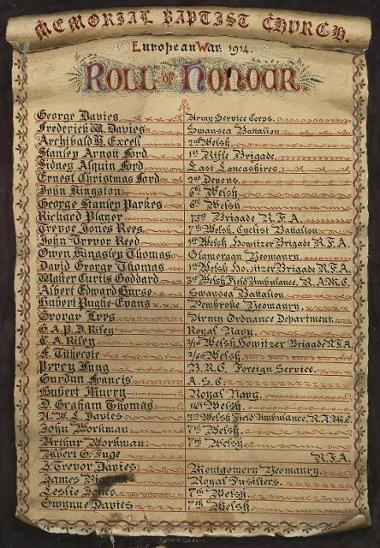 MEMORIAL BAPTIST CHURCH.
European War 1914.
ROLL OF HONOUR
George Davies Army Service Corps.
Frederick W. Davies Swansea Battalion
Archibald H. Excell 2nd Welsh.
Stanley Arnott Ford 1st Rifle Brigade
Sidney Alquin Ford East Lancashires.
Ernest Christmas Ford 9th Devons.
John Kingston 6th Welsh
George Stanley Parkes 6th Welsh
Richard Player Brigade R.F.A.
Trevor Jones Rees 7th Welsh Cyclist Battalion
John Trevor Reed 1st Welsh Howitzer Brigade R.F.A.
Owen Kingsley Thomas Glamorgan Yeomanry.
David George Thomas 1st Welsh Howitzer Brigade R.F.A.
Walter Curtis Goddard 3rd Welsh Field Ambulance, R.A.M.C.
Albert Edward Burse Swansea Battalion
Hubert Pughe-Evans Pembroke Yeomanry.
George Army Ordnance Department.
G.A.P.D. Riley Royal Navy.
C.A. Riley Welsh Howitzer Brigade R.F.A
F. Titherote Welsh
Percy Jung B.R.C. Foreign Service.
Gurdon Francis A.S.C.
Hubert Murry Royal Navy.
D. Graham Thomas 14th Welsh
Davies 3rd Welsh Field Ambulance, R.A.M.C.
John Workman 7th Welsh
Arthur Workman 7th Welsh
Albert G. Inge R.F.A.
J Trevor Davies Montgomery Yeomanry.
James Royal Fusiliers.
Leslie Jones 7th Welsh.
Gwynne Davies 7th Welsh.